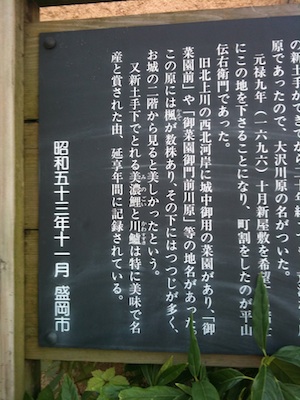 の新土手ができ
原であったので、大沢川原の名がついた。
元禄九年（一六九六）十月新屋敷を希望
にこの地を下さることになり、町割をしたのが平山
伝右衛門であった。
旧北上川の西北河岸に城中御用の菜園があり、「御
菜園前」や「御菜園御門前川原」等の地名があった。
この原には楓が数株あり、その下にはつつじが多く、
お城の二階から見ると美しかったという。
又新土手下でとれる美濃鯉と川鱸は特に美味で名
産と賞された由、延享年間に記録されている。
昭和五十三年十一月 盛岡市